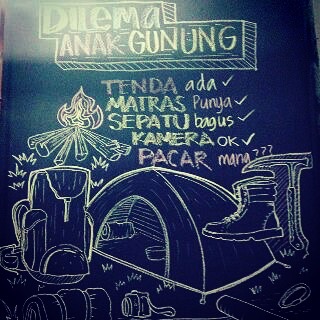 DiLEMA
ANAK GUNUNG
TENDA ada ✓
MATRAS Punya ✓
SEPATU bagus ✓
KAMERA OK ✓
PACAR mana???